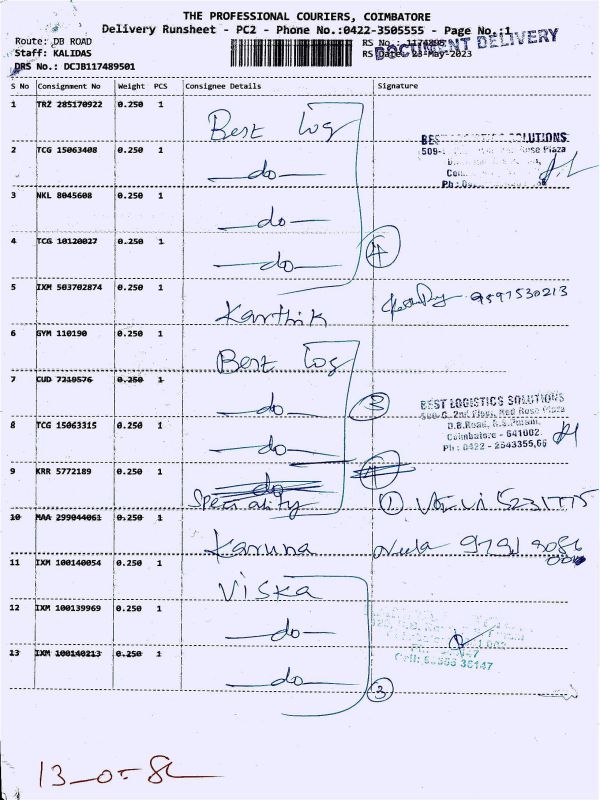 THE PROFESSIONAL COURIERS, COIMBATORE
Delivery Runsheet - PC2 - Phone No.:0422-3505555 - Page No.:1
Route: DB ROAD
Staff: KALIDAS
DRS No.: DCJB117489501
RS No.:
RS Date: 23-May-2023
DOCUMENT DELIVERY
S No Consignment No Weight PCS Consignee Details Signature
1 TRZ 285170922 0.250 1 Best log
2 TCG 15063408 0.250 1 do
BEST LOGISTICS SOLUTIONS
3 NKL 8045608 0.250 1 do
4 TCG 10120027 0.250 1 do 4
5 IXM 503702874 0.250 1 Karthik 9597530213
6 GYM 110190 0.250 1 Best log
7 CUD 7219576 0.250 1 do 3
BEST LOGISTICS SOLUTIONS
509-G, 2nd Floor, Red Rose Plaza
D.B.Road, R.S.Puram,
Coimbatore - 641002
Ph : 0422 - 2543355,66
8 TCG 15063315 0.250 1 do
9 KRR 5772189 0.250 1 do 4
Speciality 1
10 MAA 299044061 0.250 1 Karuna
11 IXM 100140054 0.250 1 Viska
12 IXM 100139969 0.250 1 do
13 IXM 100140213 0.250 1 do 3